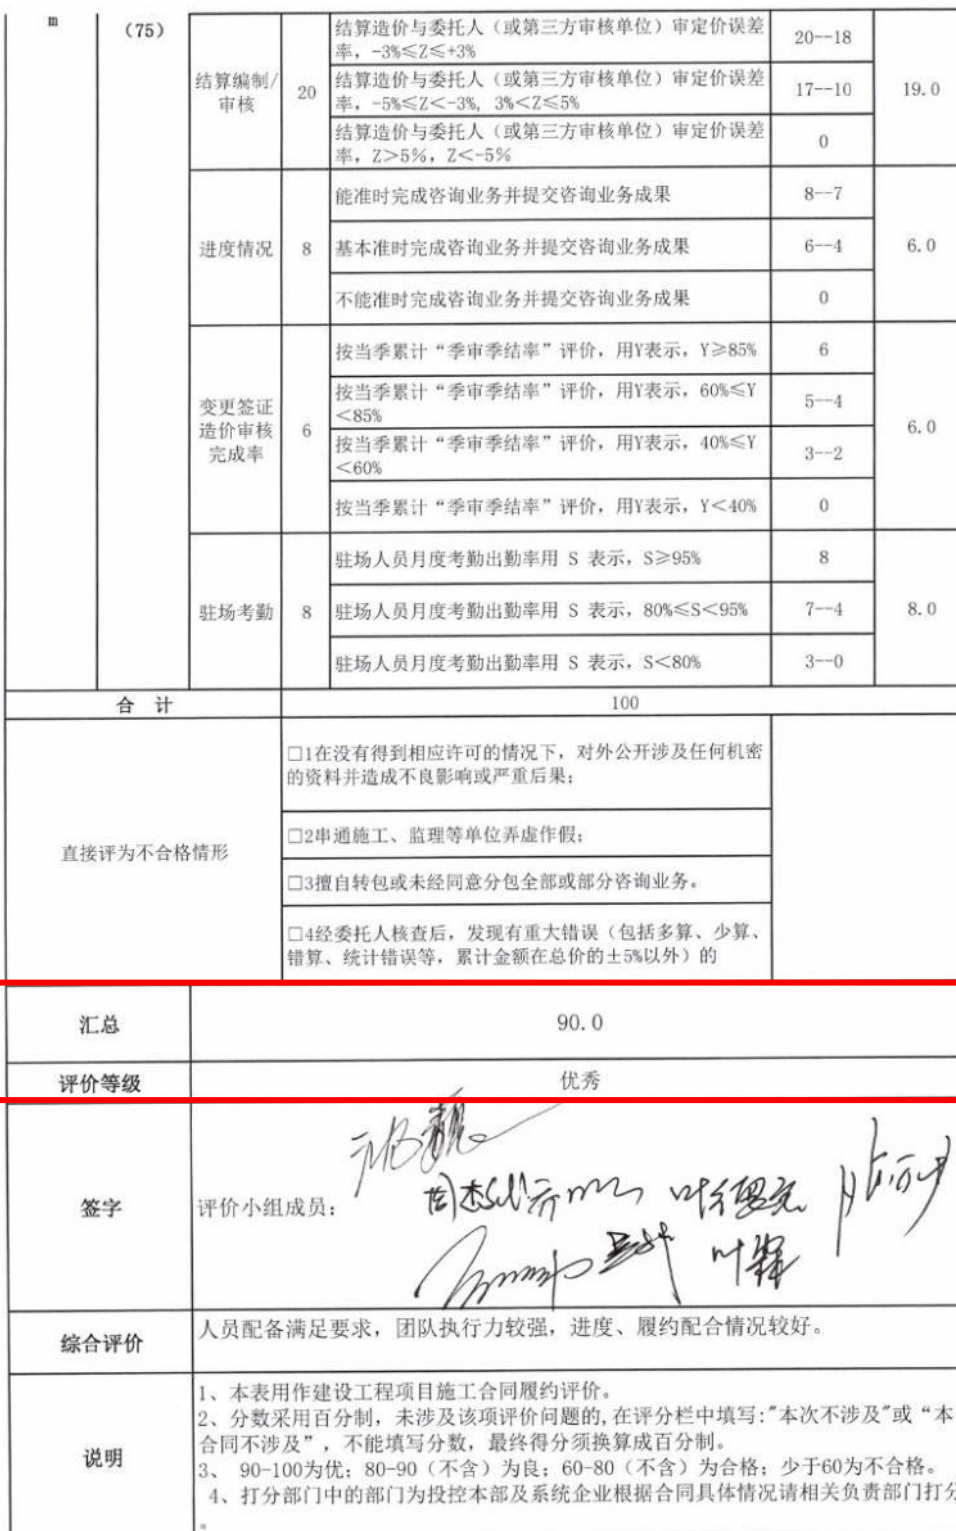 m
(75)
结算编制/
审核
20
结算造价与委托人（或第三方审核单位）审定价误差
率，-3%≤Z≤+3%
20--18
结算造价与委托人（或第三方审核单位）审定价误差
率，-5%≤Z<-3%, 3%<Z≤5%
17--10
结算造价与委托人（或第三方审核单位）审定价误差
率，Z>5%，Z<-5%
0
19.0
进度情况
8
能准时完成咨询业务并提交咨询业务成果
8--7
基本准时完成咨询业务并提交咨询业务成果
6--4
不能准时完成咨询业务并提交咨询业务成果
0
6.0
变更签证
造价审核
完成率
6
按当季累计“季审季结率”评价，用Y表示，Y≥85%
6
按当季累计“季审季结率”评价，用Y表示，60%≤Y
<85%
5--4
按当季累计“季审季结率”评价，用Y表示，40%≤Y
<60%
3--2
按当季累计“季审季结率”评价，用Y表示，Y<40%
0
6.0
驻场考勤
8
驻场人员月度考勤出勤率用 S 表示，S≥95%
8
驻场人员月度考勤出勤率用 S 表示，80%≤S<95%
7--4
驻场人员月度考勤出勤率用 S 表示，S<80%
3--0
8.0
合 计
100
直接评为不合格情形
□1在没有得到相应许可的情况下，对外公开涉及任何机密
的资料并造成不良影响或严重后果；
□2串通施工、监理等单位弄虚作假；
□3擅自转包或未经同意分包全部或部分咨询业务。
□4经委托人核查后，发现有重大错误（包括多算、少算、
错算、统计错误等，累计金额在总价的±5%以外）的
汇总
90.0
评价等级
优秀
签字
评价小组成员：
综合评价
人员配备满足要求，团队执行力较强，进度、履约配合情况较好。
说明
1、本表用作建设工程项目施工合同履约评价。
2、分数采用百分制，未涉及该项评价问题的,在评分栏中填写:"本次不涉及"或“本
合同不涉及”，不能填写分数，最终得分须换算成百分制。
3、 90-100为优；80-90（不含）为良；60-80（不含）为合格；少于60为不合格。
4、打分部门中的部门为投控本部及系统企业根据合同具体情况请相关负责部门打分
。